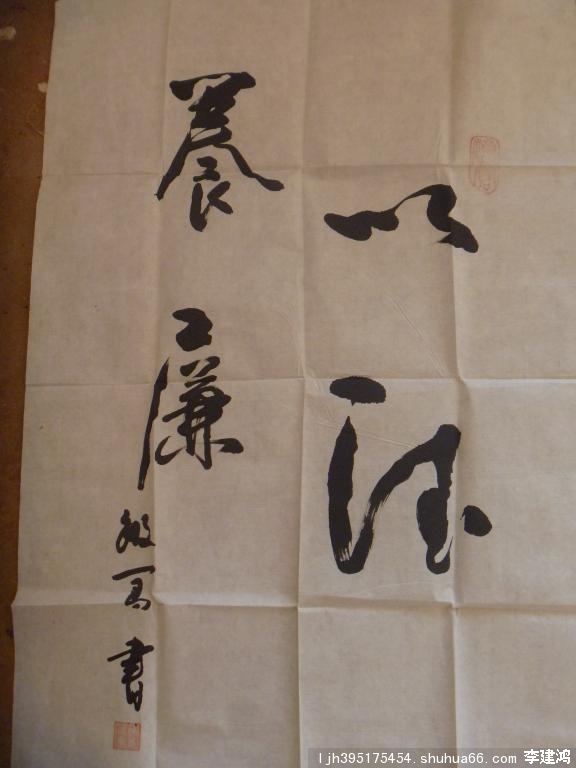 以法
養廉
書
ljh395175454.shuhua66.com 李建鸿